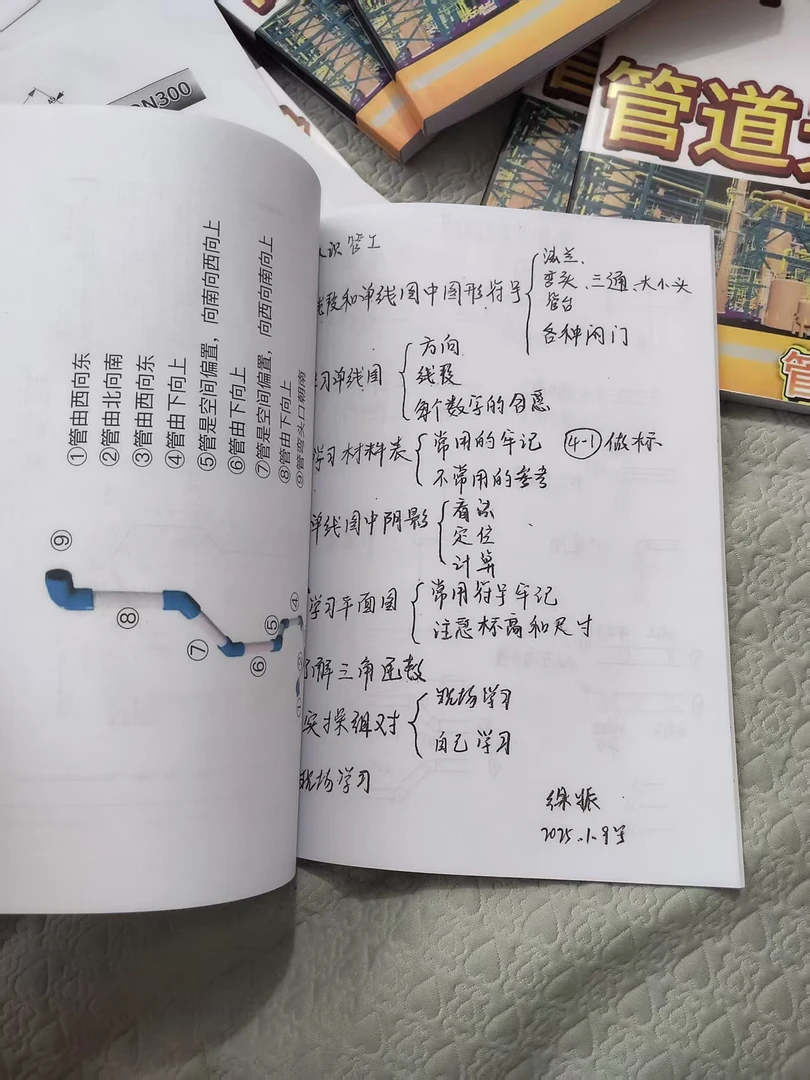 DN300
管道
管
①管由西向东
②管由北向南
③管由西向东
④管由下向上
⑤管是空间偏置，向南向西向上
⑥管由下向上
⑦管是空间偏置，向西向南向上
⑧管由下向上
⑨管弯头口朝南
⑨
⑧
⑦
⑥
⑤
④
识管工
段和单线图中图形符号
法兰、
弯头、三通、大小头
管台
各种阀门
习单线图
方向
线段
每个数字的含意
学习材料表
常用的牢记 4-1 做标
不常用的参考
单线图中阴影
看法
定位
计算
学习平面图
常用符号牢记
注意标高和尺寸
了解三角函数
实操组对
现场学习
自己学习
现场学习
徐振
2025.1.9号